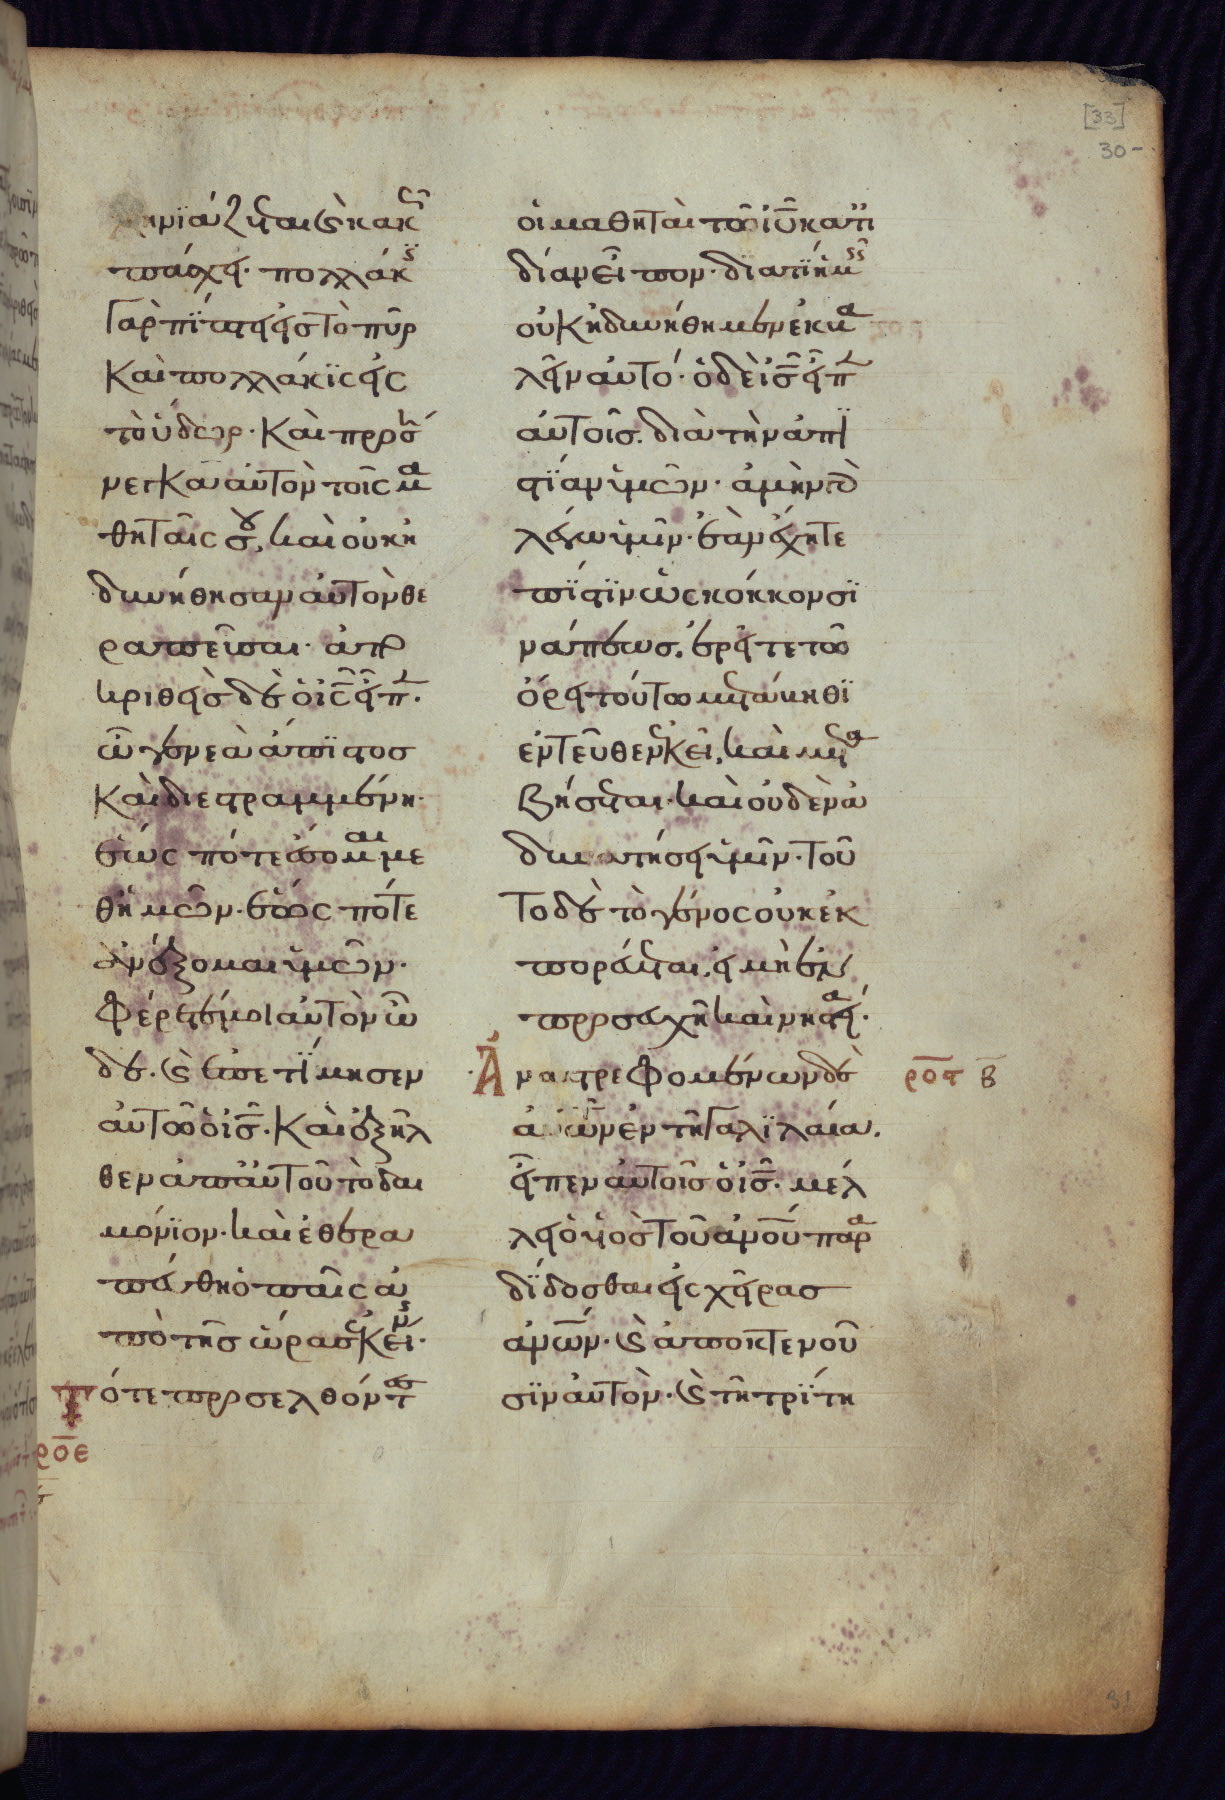 [33]
30
νιάζεται ϗ κακῶς
πάσχει· πολλάκις
γὰρ πίπτει εἰς τὸ πῦρ
καὶ πολλάκϊς εἰς
τὸ ὕδωρ· καὶ προσή
νεγκα αὐτὸν τοῖς μα
θηταῖς σου, καὶ οὐκ ἠ
δυνήθησαν αὐτὸν θε
ραπεῦσαι· ἀπο
κριθεὶς δὲ ὁ ις εἶπ.
ὦ γενεὰ ἄπϊστος
καὶ διεστραμμένη·
ἕως πότε ἔσομαι με
θ ἡμῶν· ἕως πότε
ἀνέξομαι ὑμῶν·
φέρετέ μοι αὐτὸν ὧ
δε. ϗ ἐπετίμησεν
αὐτῶ ὁ ις. καὶ ἐξῆλ
θεν ἀπ αὐτοῦ τὸ δαι
μόνϊον· καὶ ἐθερα
πεύθη ὁ παῖς ἀ
πὸ τῆς ὥρας ἐκείνης·
Τότε προσελθόντες
ροε
οἱ μαθηταὶ τῶ ιυ κατ ἰ
δίαν εἶπον· διατί ἡμεῖς
οὐκ ἠδυνήθημεν ἐκβα
λεῖν αὐτό· ὁ δὲ ις εἶπ
αὐτοῖς. διὰ τὴν ἀπϊ
στίαν ὑμῶν· ἀμὴν γὰρ
λέγω ὑμῖν· ἐὰν ἔχητε
πίστϊν ὡς κόκκον σϊ
νάπεως, ἐρεῖτε τῶ
ὄρει τούτω μετάβηθϊ
ἐντεῦθεν ἐκεῖ, καὶ μετα
βήσεται· καὶ οὐδὲν ἀ
δυνατήσει ὑμῖν· τοῦ
το δὲ τὸ γένος οὐκ ἐκ
πορεύεται, εἰ μὴ ἐν
προσευχῆ καὶ νηστεία·
Ἀναστρεφομένων δὲ
αὐτῶν ἐν τῆ Γαλϊλαία.
εἶπεν αὐτοῖς ὁ ις. μέλ
λει ὁ υἱὸς τοῦ ανου παρα
δίδοσθαι εἰς χεῖρας
ανων· ϗ ἀποκτενοῦ
σϊν αὐτὸν· ϗ τῆ τρίτη
ροϛ β
31